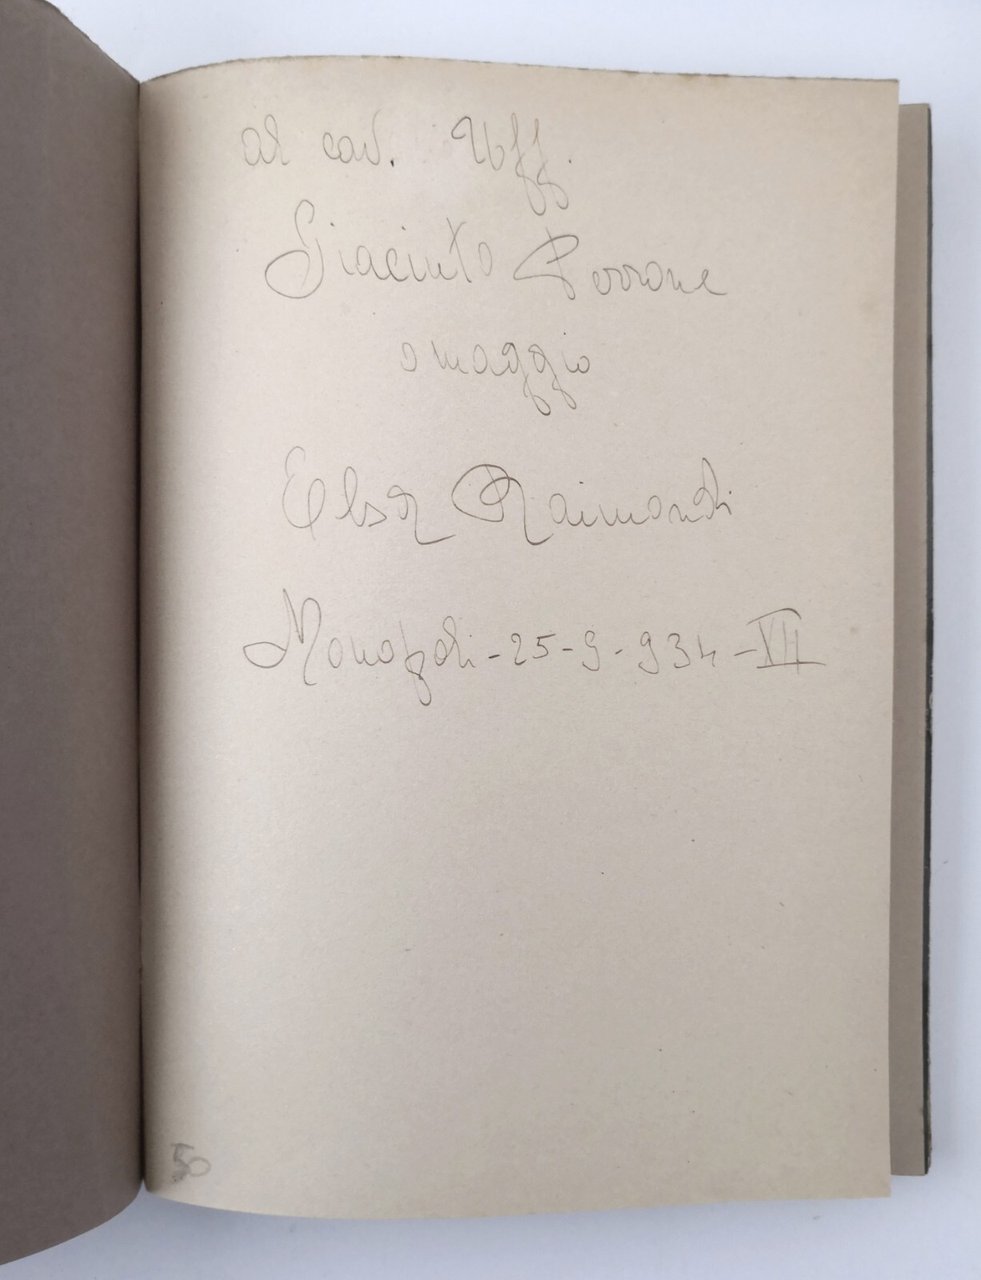 al cav. Uff.
Giacinto Perrone
omaggio
Elsa Raimondi
Monopoli - 25 - 9 - 934 - XII
50